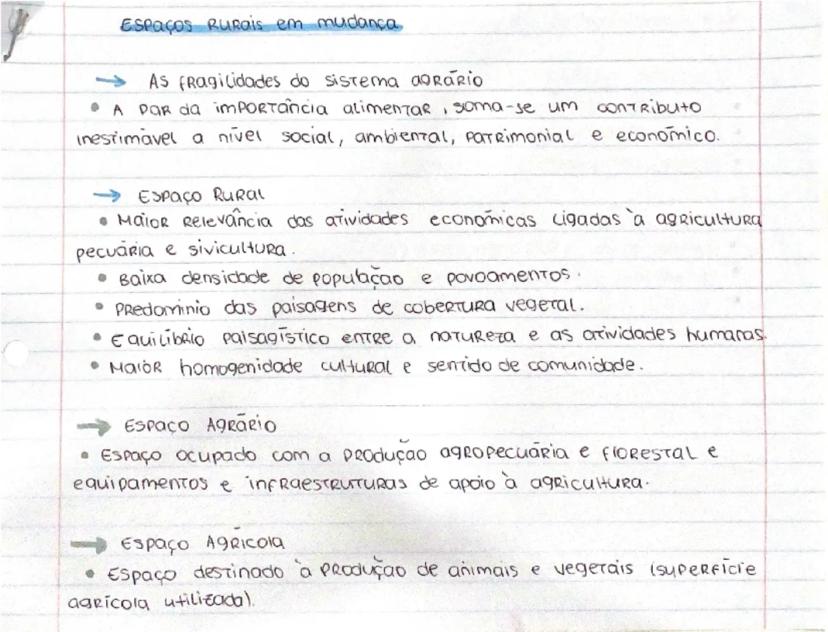 Espaços Rurais em mudança
→ As fragilidades do sistema agrário
• A par da importância alimentar, soma-se um contributo
inestimável a nível social, ambiental, patrimonial e económico.
→ Espaço Rural
• Maior relevância das atividades económicas ligadas à agricultura
pecuária e sivicultura.
• Baixa densidade de população e povoamentos.
• Predominio das paisagens de cobertura vegetal.
• Equilíbrio paisagístico entre a natureza e as atividades humanas.
• Maior homogenidade cultural e sentido de comunidade.
→ Espaço Agrário
• Espaço ocupado com a produção agropecuária e florestal e
equipamentos e infraestruturas de apoio à agricultura.
→ Espaço Agrícola
• Espaço destinado à produção de animais e vegetais (superfície
agrícola utilizada).